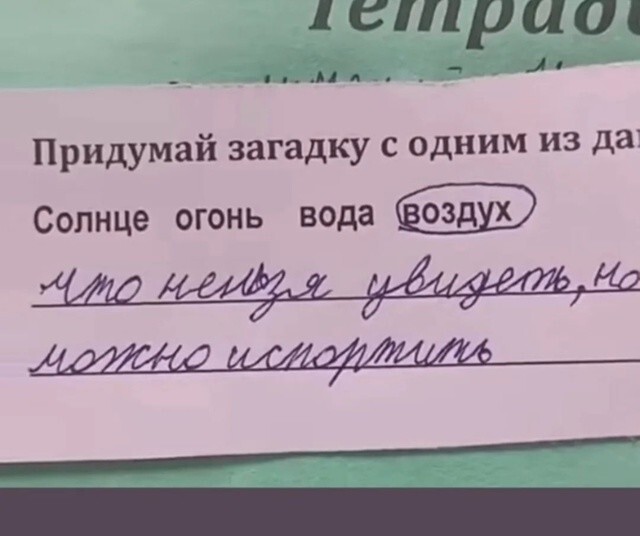 Тетрадь
Придумай загадку с одним из да
Солнце огонь вода воздух
что нельзя увидеть, но
можно испортить